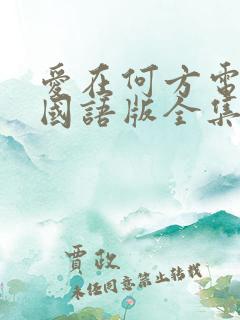 愛在何方電
國語版全集
賈政
未經同意禁止轉載